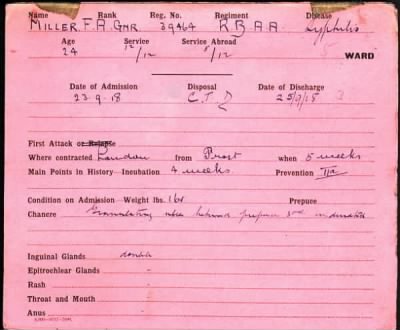 Name Rank Reg. No. Regiment Disease
MILLER. F A. GNR 39464 R.B.A.A. Syphilis
Age Service Service Abroad
24 12/12 8/12 WARD
Date of Admission Disposal Date of Discharge
23-9-18 C.T.D
First Attack or Relapse
Where contracted London from Prost when 5 weeks
Main Points in History—Incubation 4 weeks. Prevention
Condition on Admission—Weight lbs. Prepuce
Chancre behind prepuce
Inguinal Glands
Epitrochlear Glands -
Rash -
Throat and Mouth -
Anus -